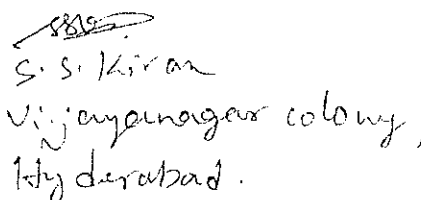 S. S. Kiran
Vijayanagar colony,
Hyderabad.